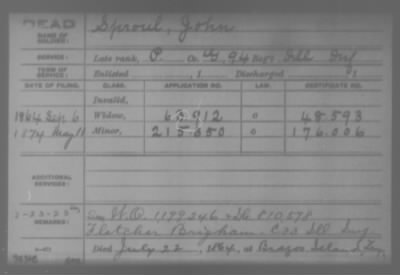 DEAD
NAME OF SOLDIER: Sproul, John
SERVICE: Late rank, P. Co. G, 94 Reg't Ill Inf
TERM OF SERVICE: Enlisted , 1 Discharged , 1
DATE OF FILING. CLASS. APPLICATION NO. LAW. CERTIFICATE NO.
Invalid,
1864 Sep 6 Widow, 63912 o 48.593
1874 May 11 Minor, 215.050 o 176.006
ADDITIONAL SERVICES:
REMARKS: W.O. 1199246 810,578
Fletcher Brigham. C 33 Ill Inf
Died July 22, 1864, at Brazos